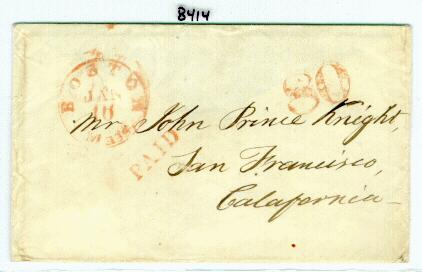 8414
BOSTON
JAN
MASS
80
Mr John Prince Knight,
PAID
San Francisco,
Calafornia